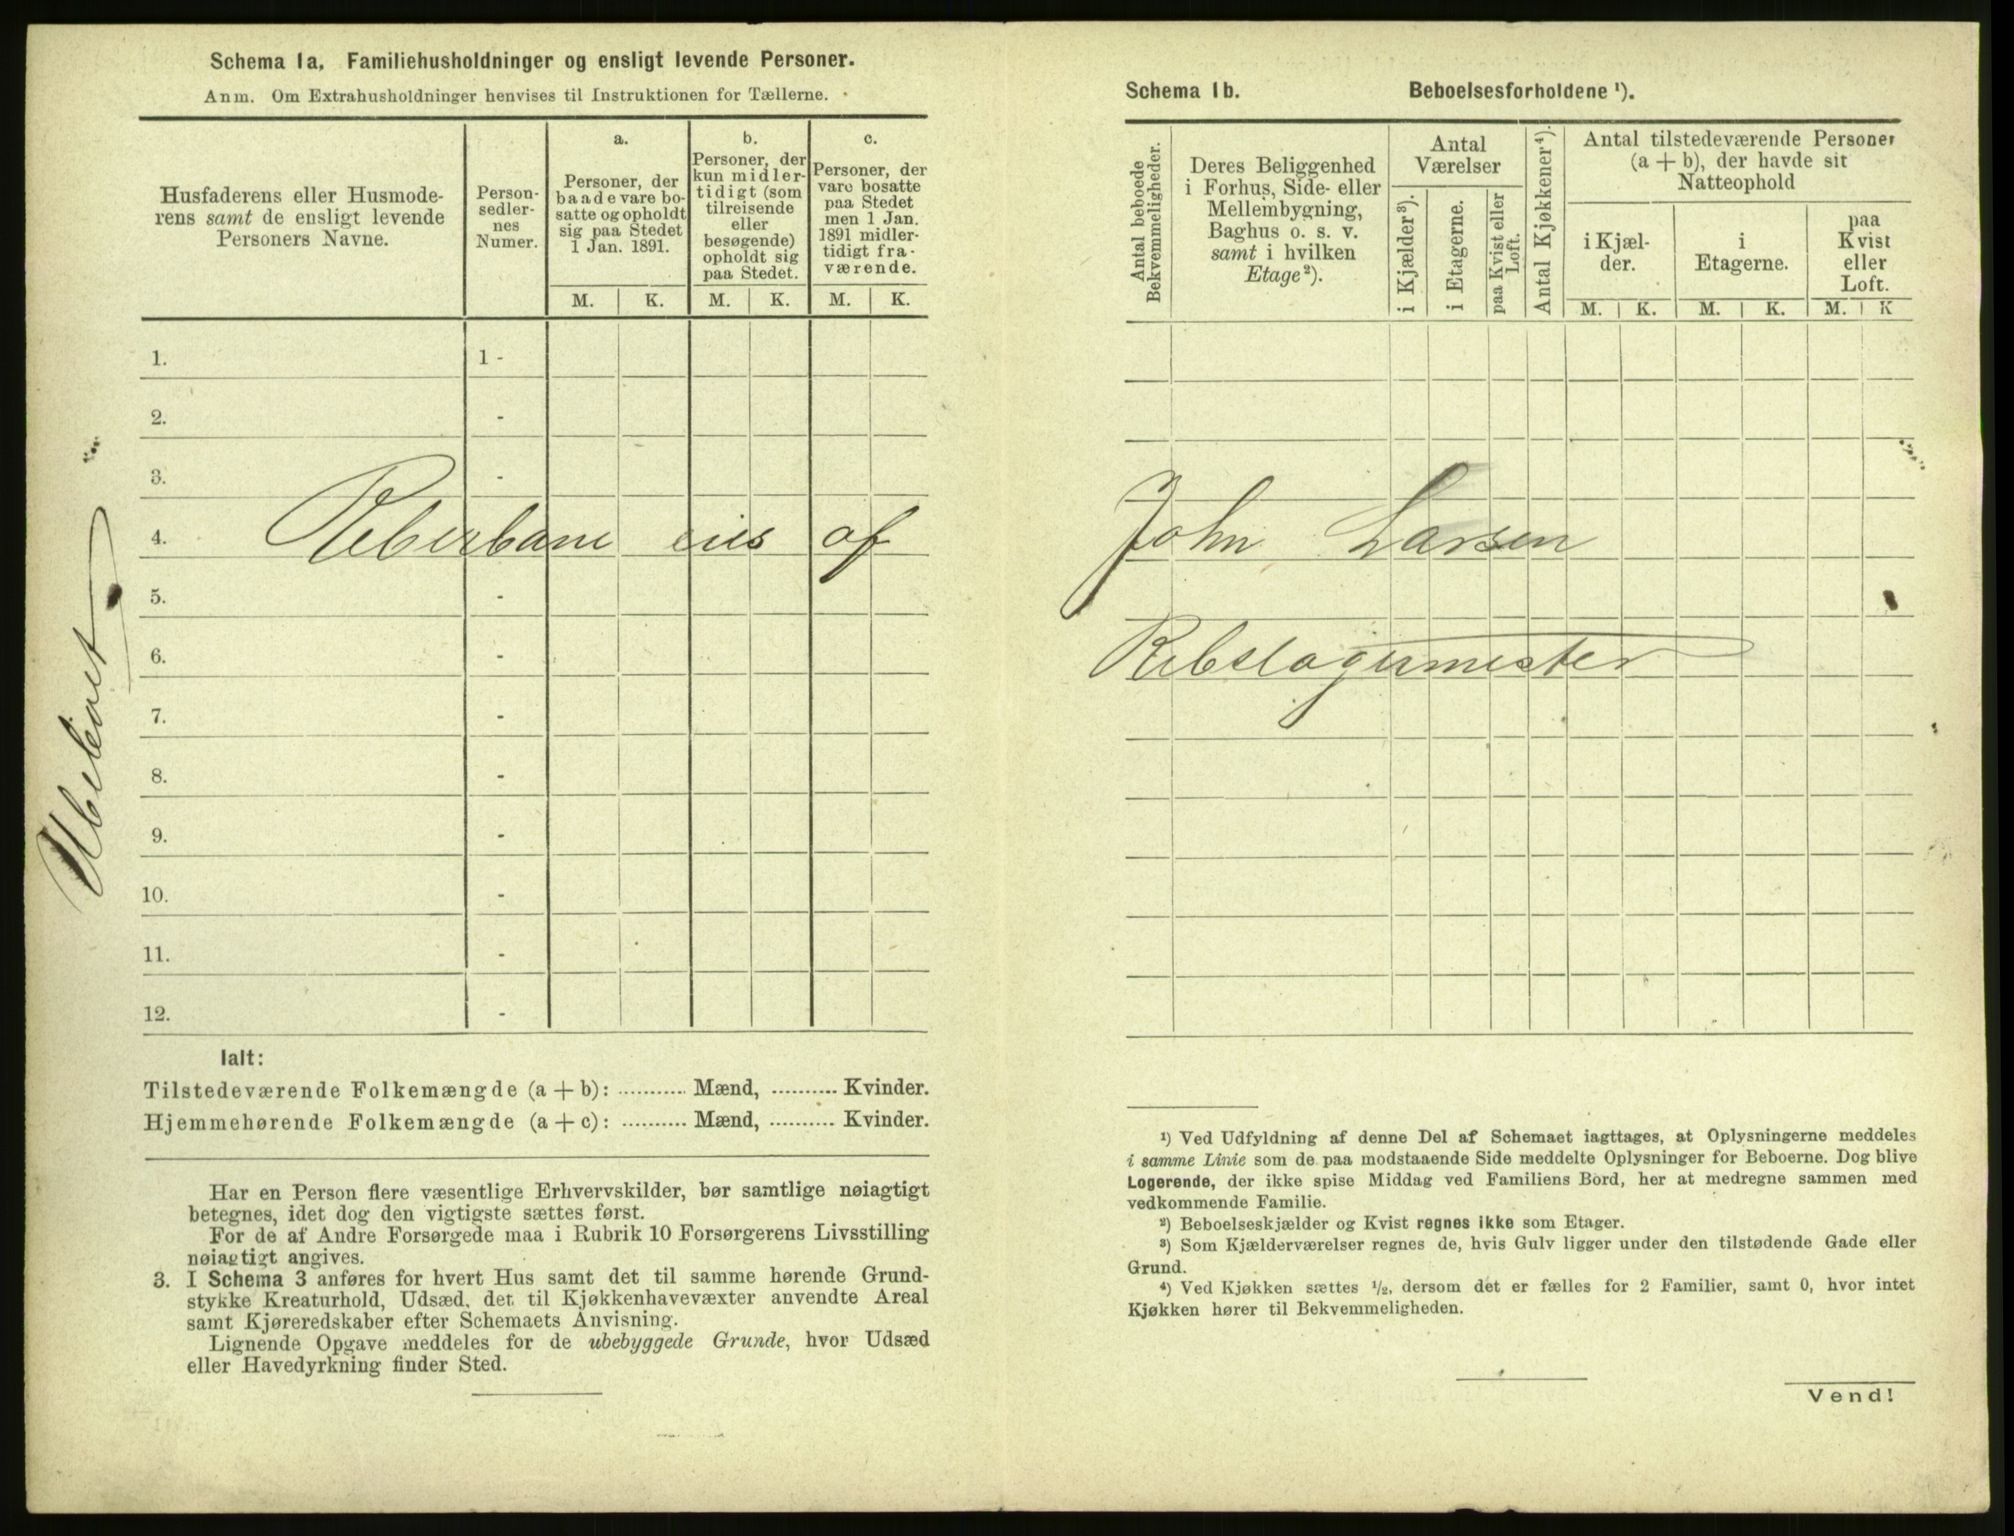 Schema 1a. Familiehusholdninger og ensligt levende Personer.
Anm. Om Extrahusholdninger henvises til Instruktionen for Tællerne.
Husfaderens eller Husmode-
rens samt de ensligt levende
Personers Navne.
Person-
sedler-
nes
Numer.
a.
Personer, der
baade vare bo-
satte og opholdt
sig paa Stedet
1 Jan. 1891.
b.
Personer, der
kun midler-
tidigt (som
tilreisende
eller
besøgende)
opholdt sig
paa Stedet.
c.
Personer, der
vare bosatte
paa Stedet
men 1 Jan.
1891 midler-
tidigt fra-
værende.
M. K. M. K. M. K.
1. 1 -
2. -
3. -
4. Reberbane eies af
5. -
6. -
7. -
8. -
9. -
10. -
11. -
12. -
Ubeboet
Ialt:
Tilstedeværende Folkemængde (a + b): .......... Mænd, .......... Kvinder.
Hjemmehørende Folkemængde (a + c): .......... Mænd, .......... Kvinder.
Har en Person flere væsentlige Erhvervskilder, bør samtlige nøiagtigt
betegnes, idet dog den vigtigste sættes først.
For de af Andre Forsørgede maa i Rubrik 10 Forsørgerens Livsstilling
nøiagtigt angives.
3. I Schema 3 anføres for hvert Hus samt det til samme hørende Grund-
stykke Kreaturhold, Udsæd, det til Kjøkkenhavevæxter anvendte Areal
samt Kjøreredskaber efter Schemaets Anvisning.
Lignende Opgave meddeles for de ubebyggede Grunde, hvor Udsæd
eller Havedyrkning finder Sted.
Schema 1b. Beboelsesforholdene ¹).
Antal beboede
Bekvemmeligheder.
Deres Beliggenhed
i Forhus, Side- eller
Mellembygning,
Baghus o. s. v.
samt i hvilken
Etage²).
Antal
Værelser
i Kjælder³).
i Etagerne.
paa Kvist eller
Loft.
Antal Kjøkkener⁴).
Antal tilstedeværende Personer
(a + b), der havde sit
Natteophold
i Kjæl-
der.
i
Etagerne.
paa
Kvist
eller
Loft.
M. K. M. K. M. K
John Larsen
Rebslagermester
¹) Ved Udfyldning af denne Del af Schemaet iagttages, at Oplysningerne meddeles
i samme Linie som de paa modstaaende Side meddelte Oplysninger for Beboerne. Dog blive
Logerende, der ikke spise Middag ved Familiens Bord, her at medregne sammen med
vedkommende Familie.
²) Beboelseskjælder og Kvist regnes ikke som Etager.
³) Som Kjælderværelser regnes de, hvis Gulv ligger under den tilstødende Gade eller
Grund.
⁴) Ved Kjøkken sættes ½, dersom det er fælles for 2 Familier, samt 0, hvor intet
Kjøkken hører til Bekvemmeligheden.
Vend!